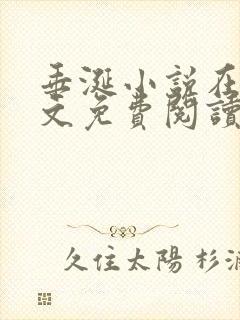 垂涎小説在
文免費閱讀
久住太陽 杉浦